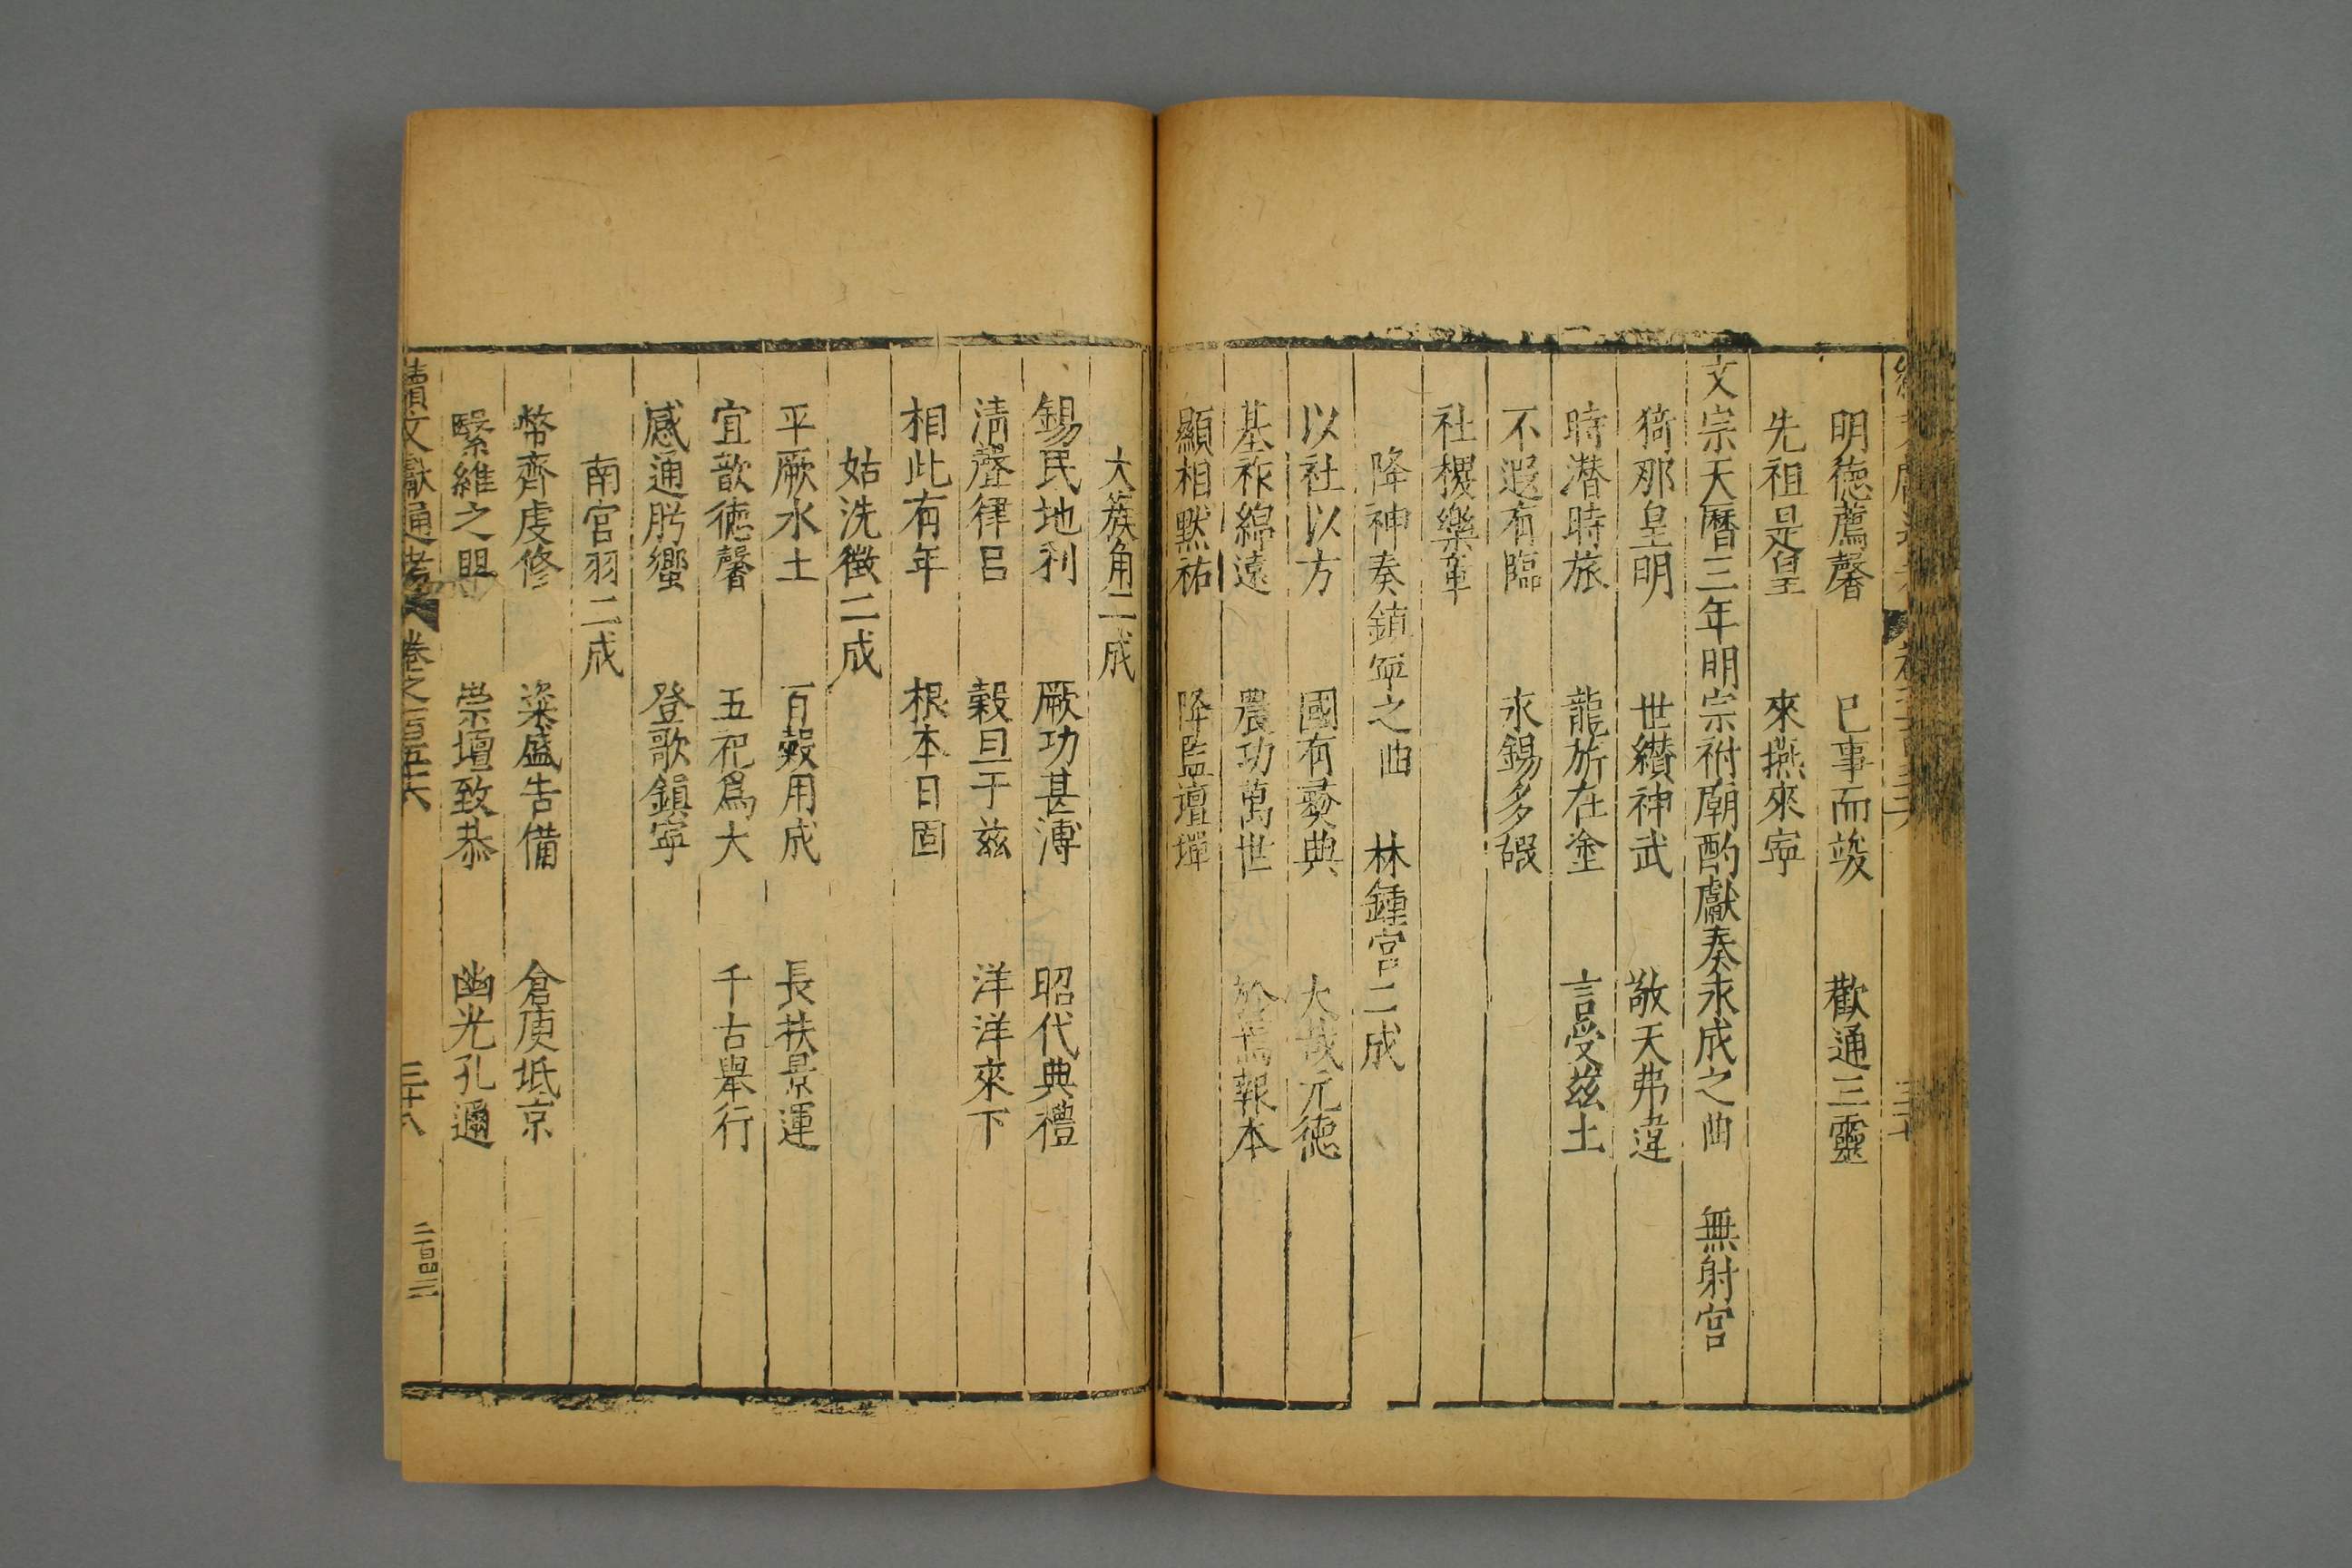 明德薦馨　巳事而竣　歡通三靈
先祖是皇　來燕來寧
文宗天曆三年明宗祔廟酌獻奏永成之曲　無射宮
猗那皇明　世纘神武　敬天弗違
時潛時旅　龍旂在塗　言受兹土
不遐有臨　永錫多嘏
社稷樂章
降神奏鎮寧之曲　林鍾宮二成
以社以方　國有彞典　大哉元德
基祚綿遠　農功萬世　於焉報本
顯相默祐　降監壇墠
太蔟角二成
錫民地利　厥功甚溥　昭代典禮
清聲律呂　穀旦于兹　洋洋來下
相此有年　根本日固
姑洗徵二成
平厥水土　百穀用成　長扶景運
宜歆德馨　五祀爲大　千古舉行
感通肸蠁　登歌鎮寧
南宮羽二成
幣齊虔修　粢盛告備　倉庾坻京
繄維之        崇壇致恭　幽光孔邇
續文獻通考　卷之一百五十六　三十八　二百四三